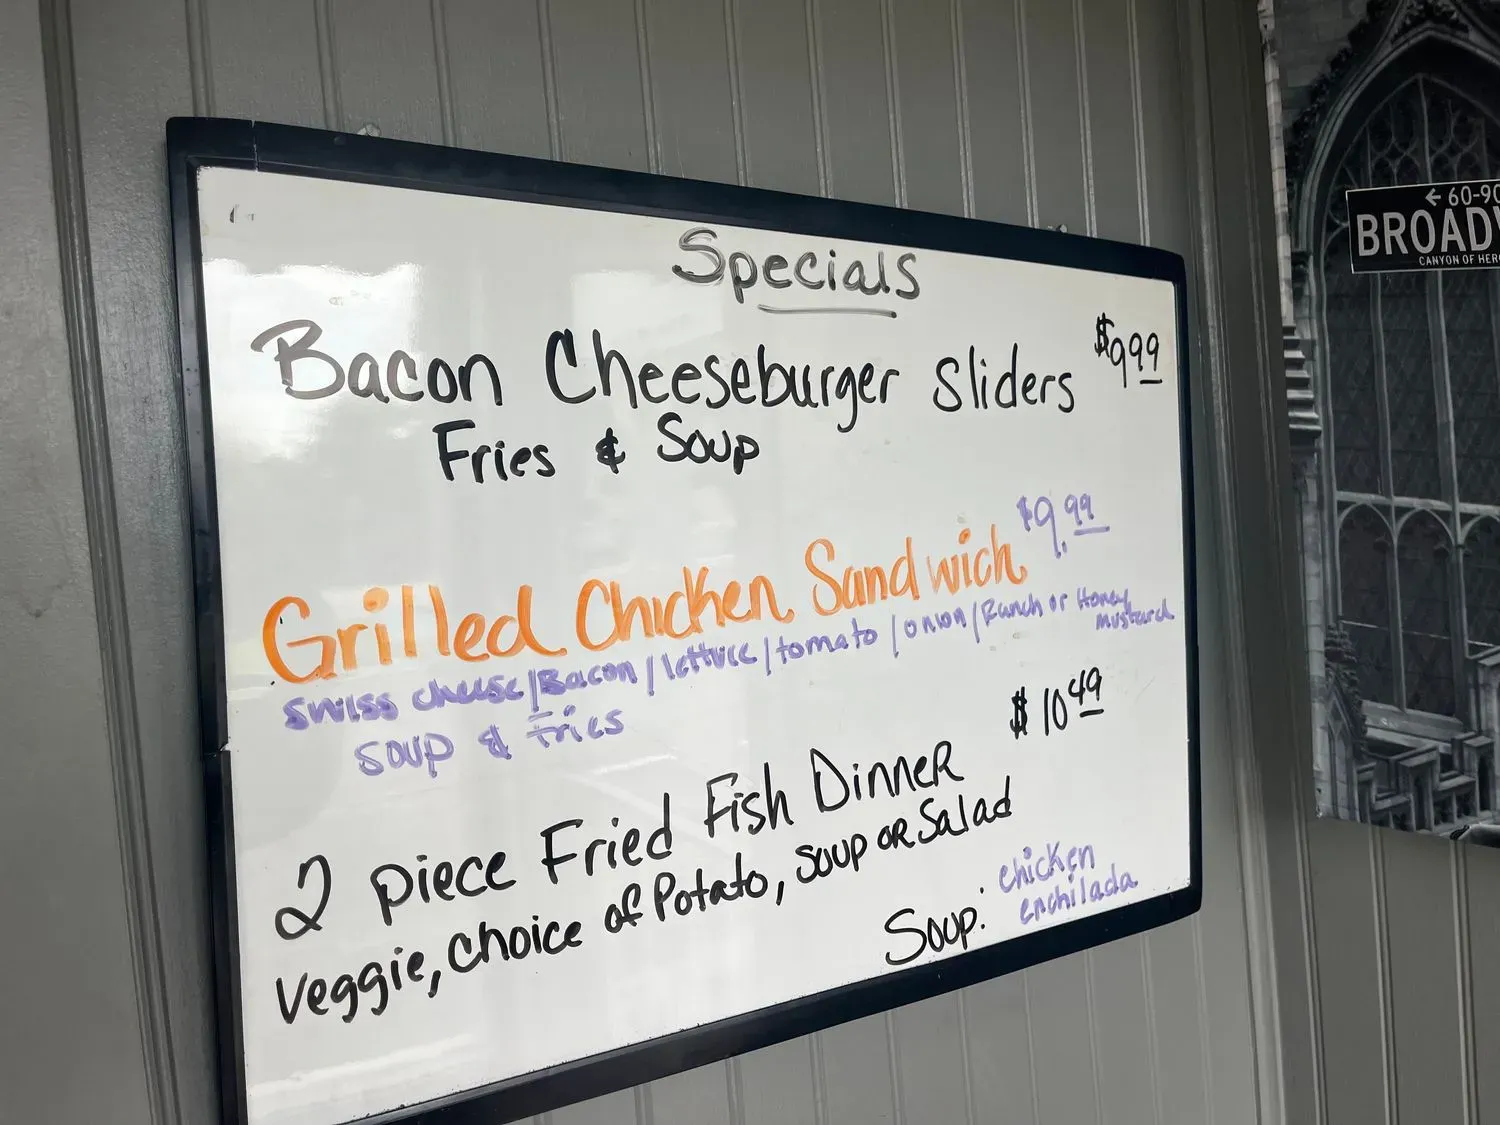 Specials
Bacon Cheeseburger Sliders $9.99
Fries & Soup
Grilled Chicken Sandwich $9.99
Swiss cheese/Bacon/lettuce/tomato/onion/Ranch or Honey
mustard
Soup & Fries
2 piece Fried Fish Dinner $10.49
Veggie, Choice of Potato, Soup or Salad
Soup: chicken
enchilada
← 60-90
BROADW
CANYON OF HERO